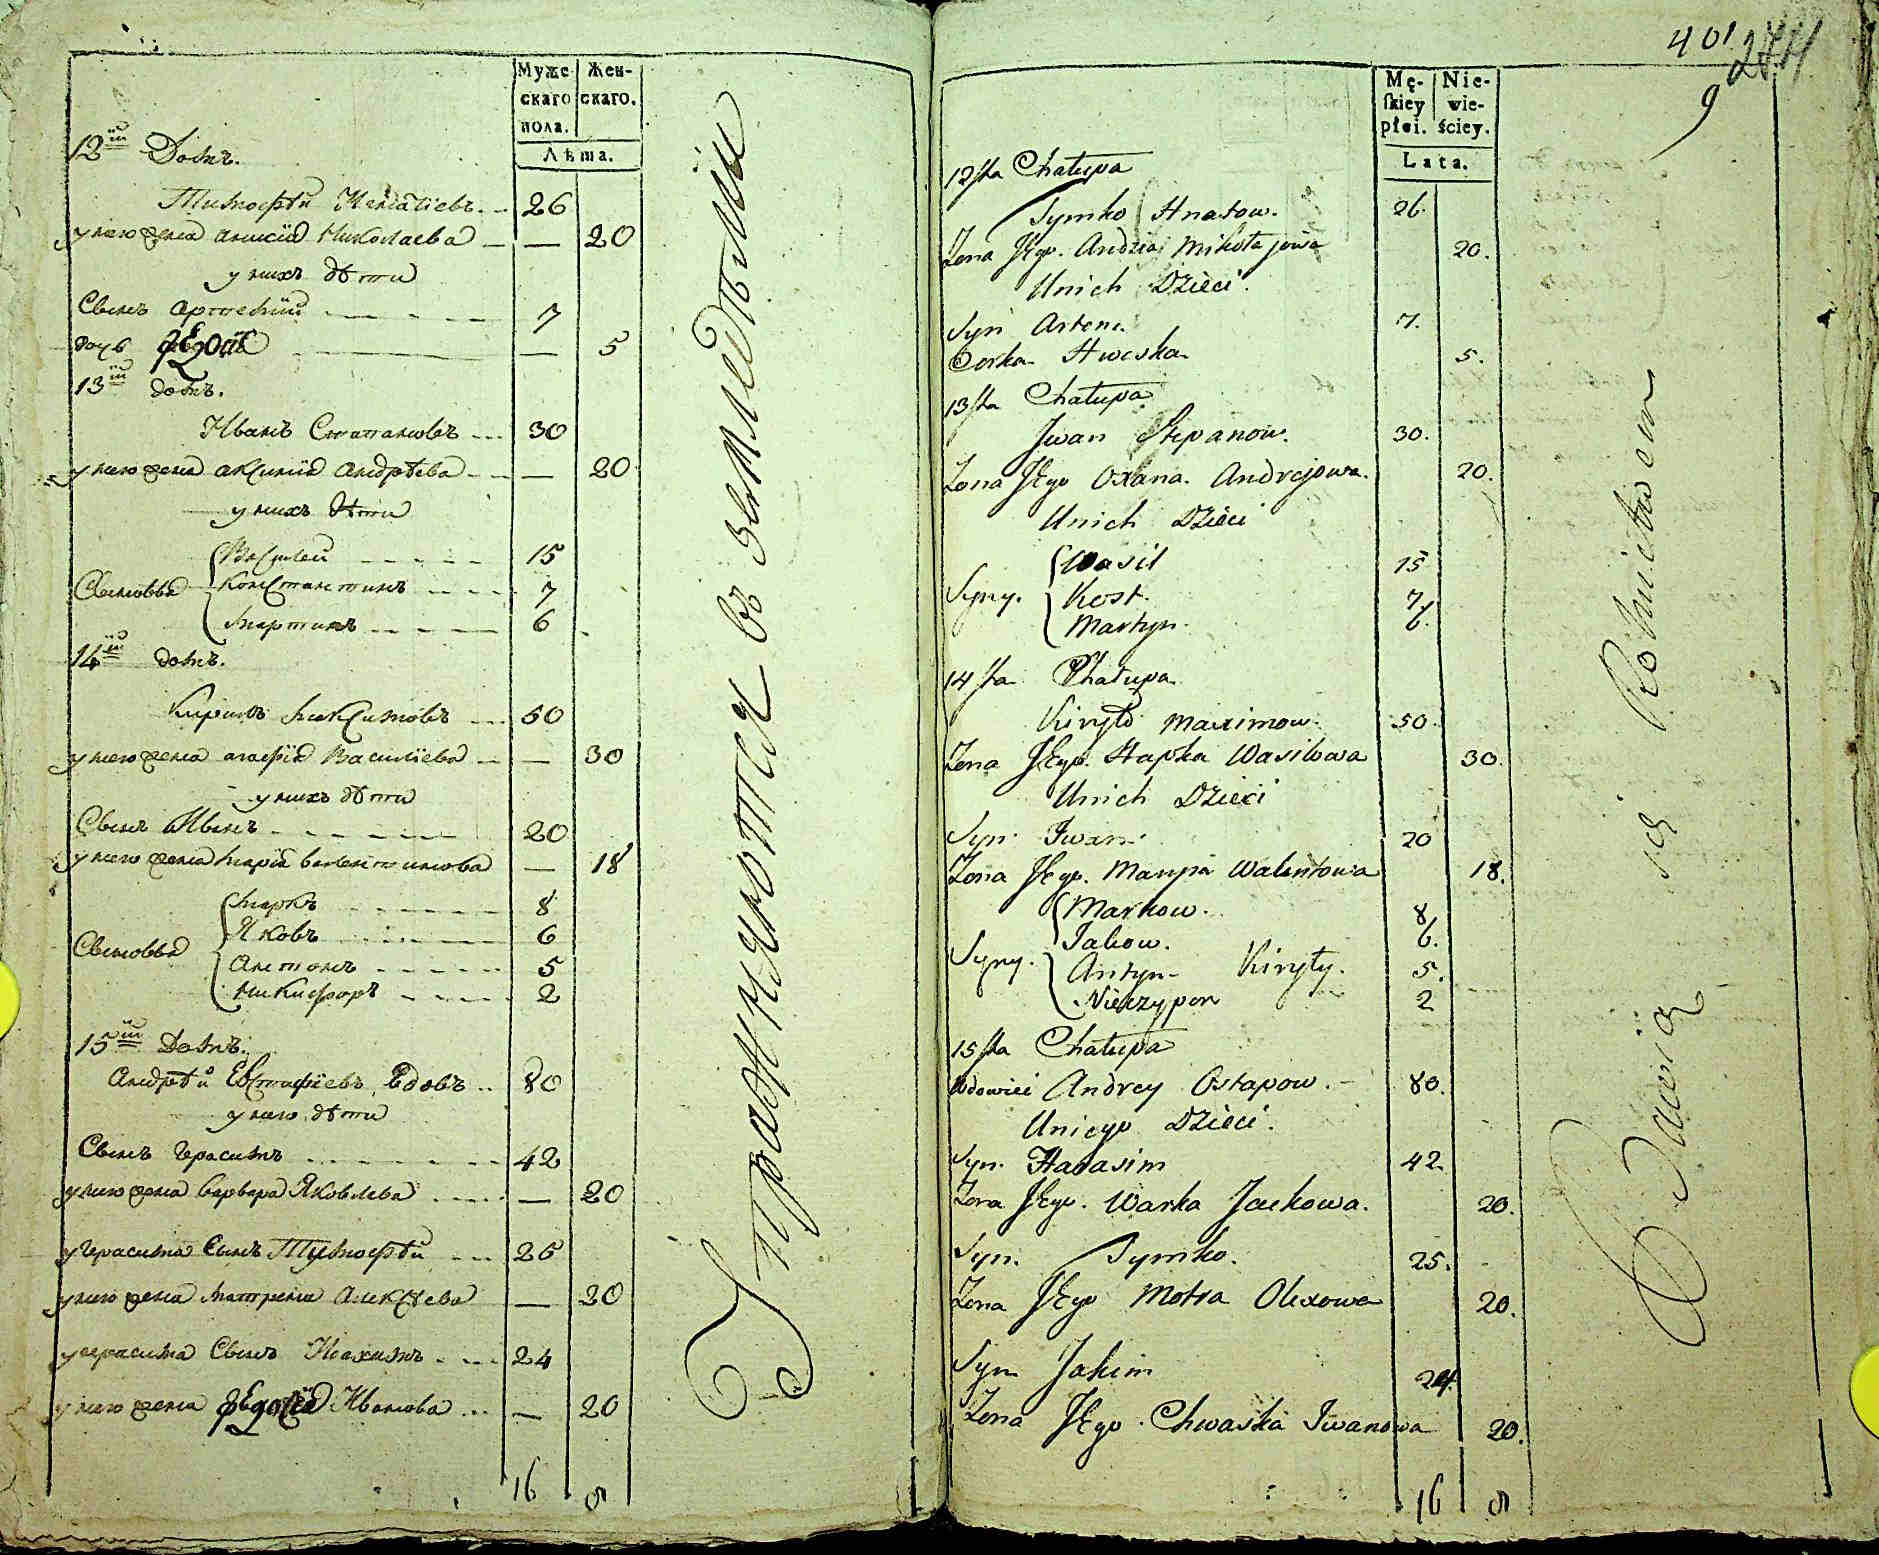 Муже Жен-
скаго скаго.
пола.
Лѣта.
12й Домъ.
Тимофѣй Игнатіевъ 26
у него жена анисія Николаева — 20
у нихъ дѣти
Сынъ артемій 7
дочь — 5
13й домъ.
Иванъ Степановъ 30
у него жена аксинія андрѣева — 20
у нихъ дѣти
Василей 15
Сыновья Константинъ 7
Мартинъ 6
14й домъ.
Кирилъ Максимовъ 50
у него жена агафія Василіева — 30
у нихъ дѣти
Сынъ Иванъ 20
у него жена Марія валентинова — 18
Маркъ 8
Сыновья Яковъ 6
Антонъ 5
Никифоръ 2
15й Домъ.
Андрѣй Евстафіевъ вдовъ 80
у него дѣти
Сынъ Герасимъ 42
у него жена варвара Яковлева — 20
у Герасима Сынъ Тимофѣй 25
у него жена Матрена Алексѣева — 20
у герасима Сынъ Иоахимъ 24
у него жена Иванова — 20
16 8
Упражняются въ земледѣліи
401
274
9
Mę- Nie-
skiey wie-
płci. ściey.
Lata.
12sta Chałupa
Tymko Hnatow. 26.
Zona Jego. Andzia Mikołajowa 20.
Unich Dzieci.
Syn Artem. 7.
Corka Hweska 5.
13sta Chałupa
Jwan Stepanow. 30.
Zona Jego Oxana. Andrejowa. 20.
Unich Dzieci
Wasil 15
Syny. Kost. 7.
Martyn. 6.
14sta Chałupa
Kiryło Maximow. 50.
Zona Jego. Hapka Wasilowa 30.
Unich Dzieci
Syn Iwan 20
Zona Jego. Marya Walentowa 18.
Markow. 8
Syny. Jakow. 6.
Antyn Kiryły. 5.
Nikzypor 2
15sta Chałupa
Wdowiec Andrey Ostapow. 80.
Uniego Dzieci.
Syn. Harasim 42
Zona Jego. Warka Jackowa. 20.
Syn. Tymko. 25.
Zona Jego Motra Olexowa 20.
Syn Jakim 24.
Zona Jego. Chwaska Iwanowa 20.
16 8
Bawią się Rolnictwem